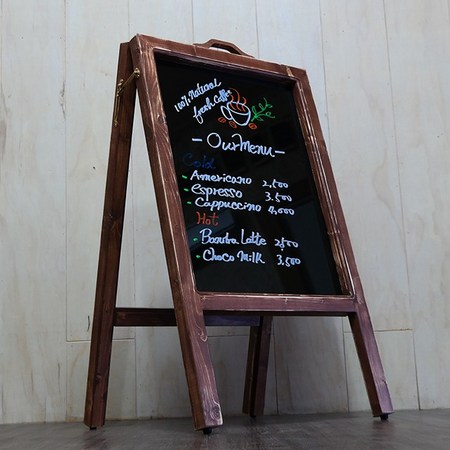 100% Natural
fresh Coffe
- Our Menu -
Cold
Americano 2,500
Espresso 3.500
Cappuccino 4,000
Hot
Latte 2500
Choco Milk 3,500